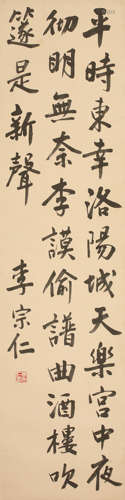 平時東幸洛陽城天樂宮中夜
彻明無奈李謨偷譜曲酒樓吹
篴是新聲
李宗仁